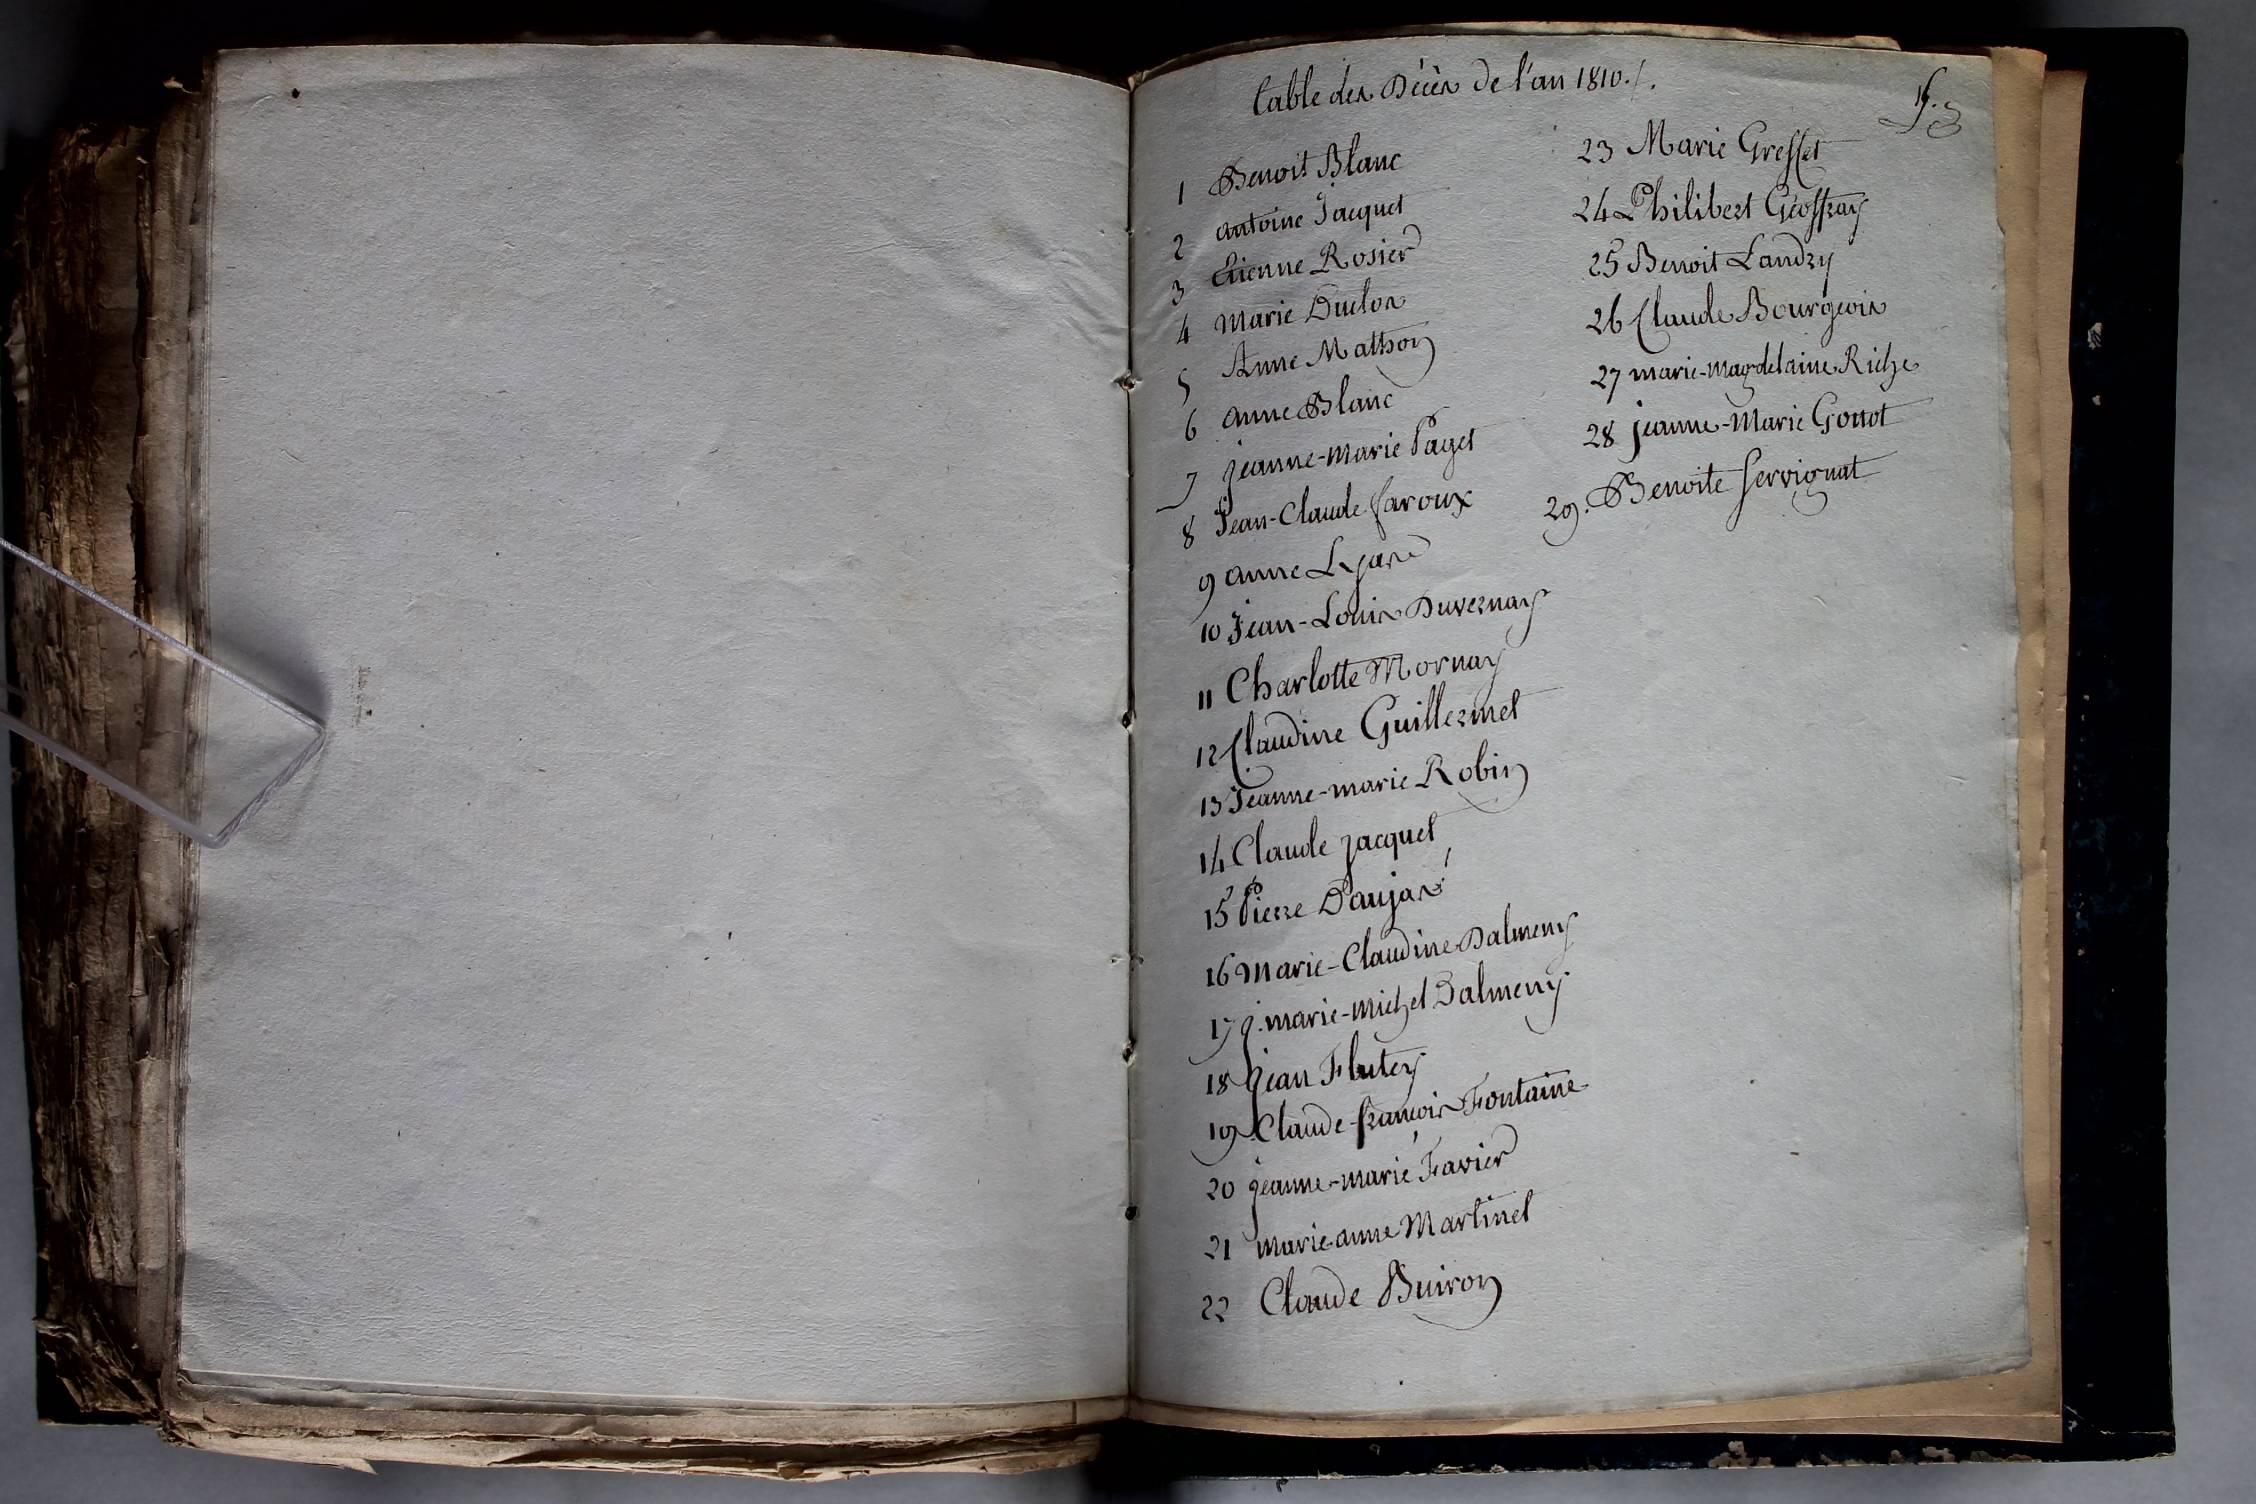 table des Décès de l'an 1810./.
1 Benoit Blanc
2 antoine Jacquet
3 Etienne Rosier
4 Marie Duclos
5 Anne Mathon
6 anne Blanc
7 jeanne-marie Paget
8 Jean-Claude faroux
9 anne
10 Jean-Louis Duvernay
11 Charlotte Mornay
12 Claudine Guillermet
13 Jeanne-marie Robin
14 Claude jacquet
15 Pierre Daujard
16 Marie-Claudine Dalmeny
17 j. marie-michel Dalmeny
18 jean Flutey
19 Claude-françois Fontaine
20 jeanne-marie Favier
21 marie-anne Martinet
22 Claude Buiron
23 Marie Gresset
24 Philibert Geoffray
25 Benoit Landry
26 Claude Bourgeois
27 marie-magdelaine Riche
28 jeanne-Marie Gottot
29. Benoite Servignat